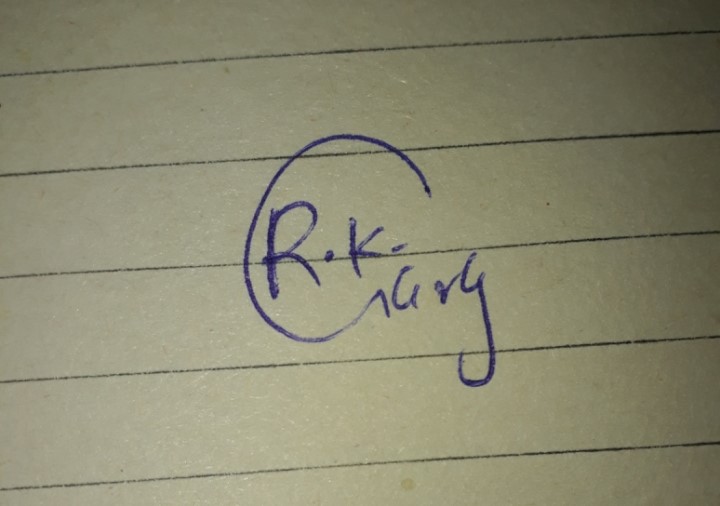 R.K.
Garg